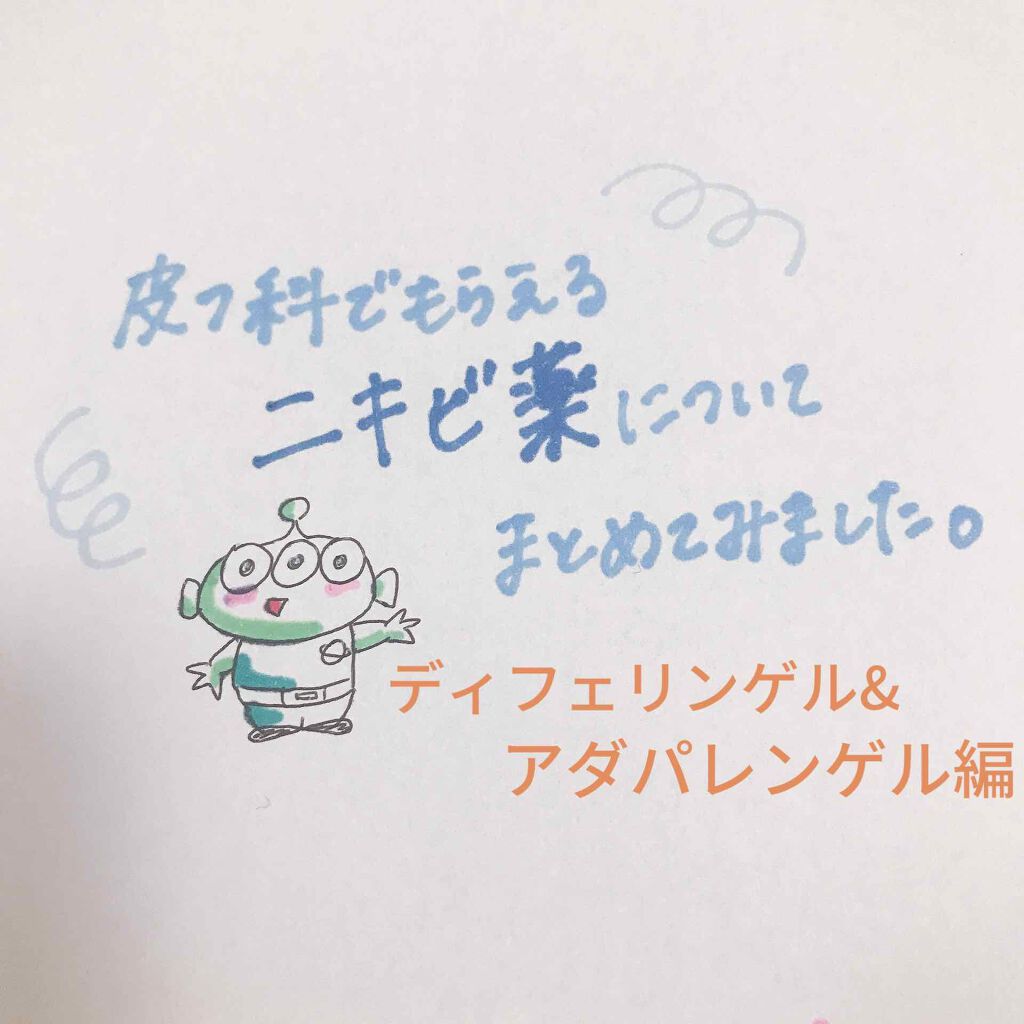 皮フ科でもらえる
ニキビ薬について
まとめてみました。
ディフェリンゲル&
アダパレンゲル編